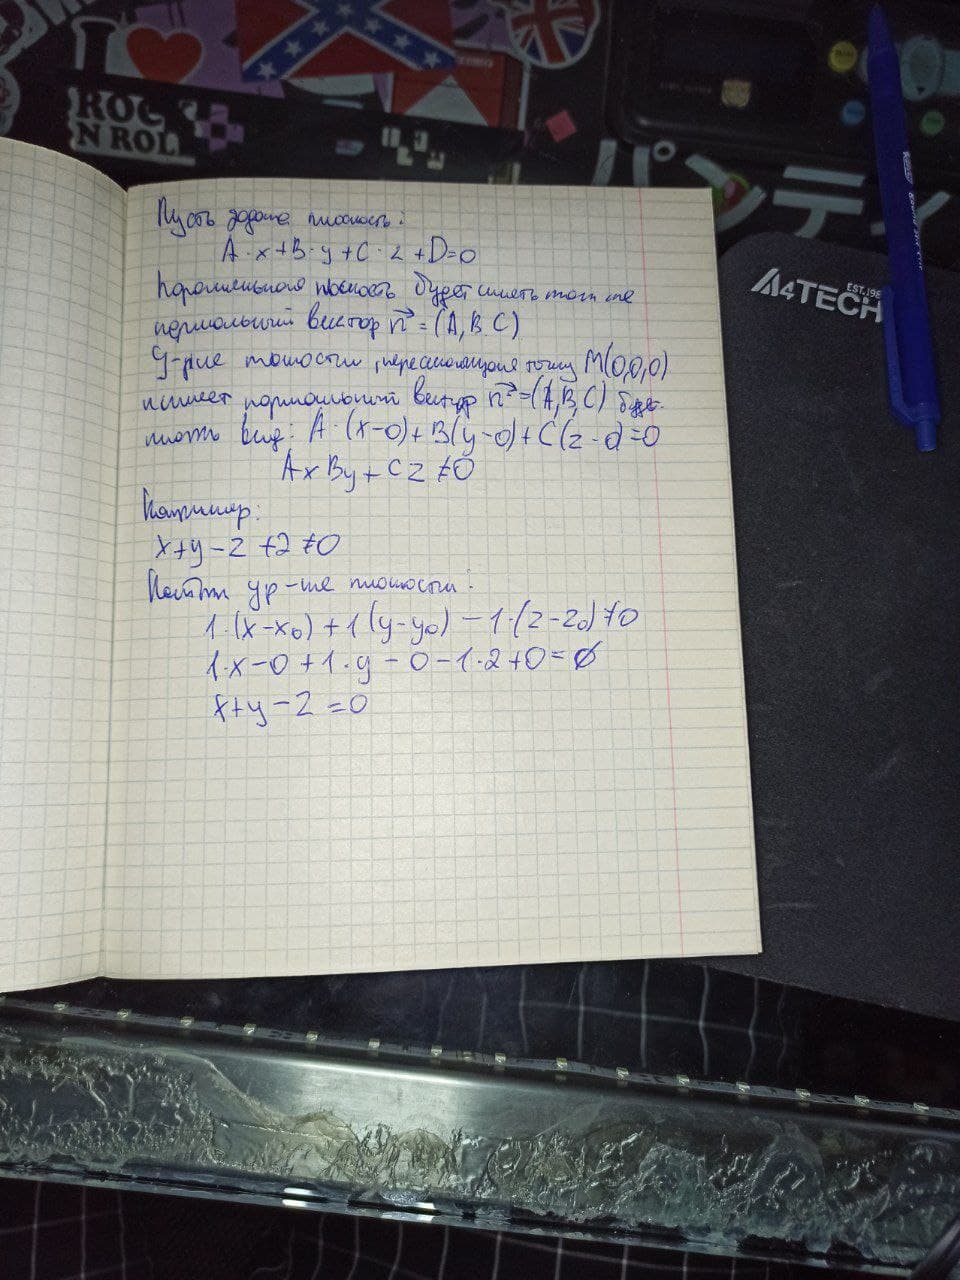 I
ROC
N ROL
パンティ
A4TECH
EST.198
Пусть задана плоскость:
A·x+B·y+C·z+D=0
Параллельная плоскость будет иметь тот же
нормальный вектор n = (A, B C)
плоскости, точку M(0,0,0)
нормальный вектор n = (A, B, C)
вид: A·(x-0)+B(y-0)+C(z-0)=0
Ax By + Cz ≠0
Например:
x+y-z+2≠0
Найти ур-ие плоскости:
1·(x-x₀)+1(y-y₀)-1·(z-z₀)≠0
1·x-0+1·y-0-1·z+0=0
x+y-z=0